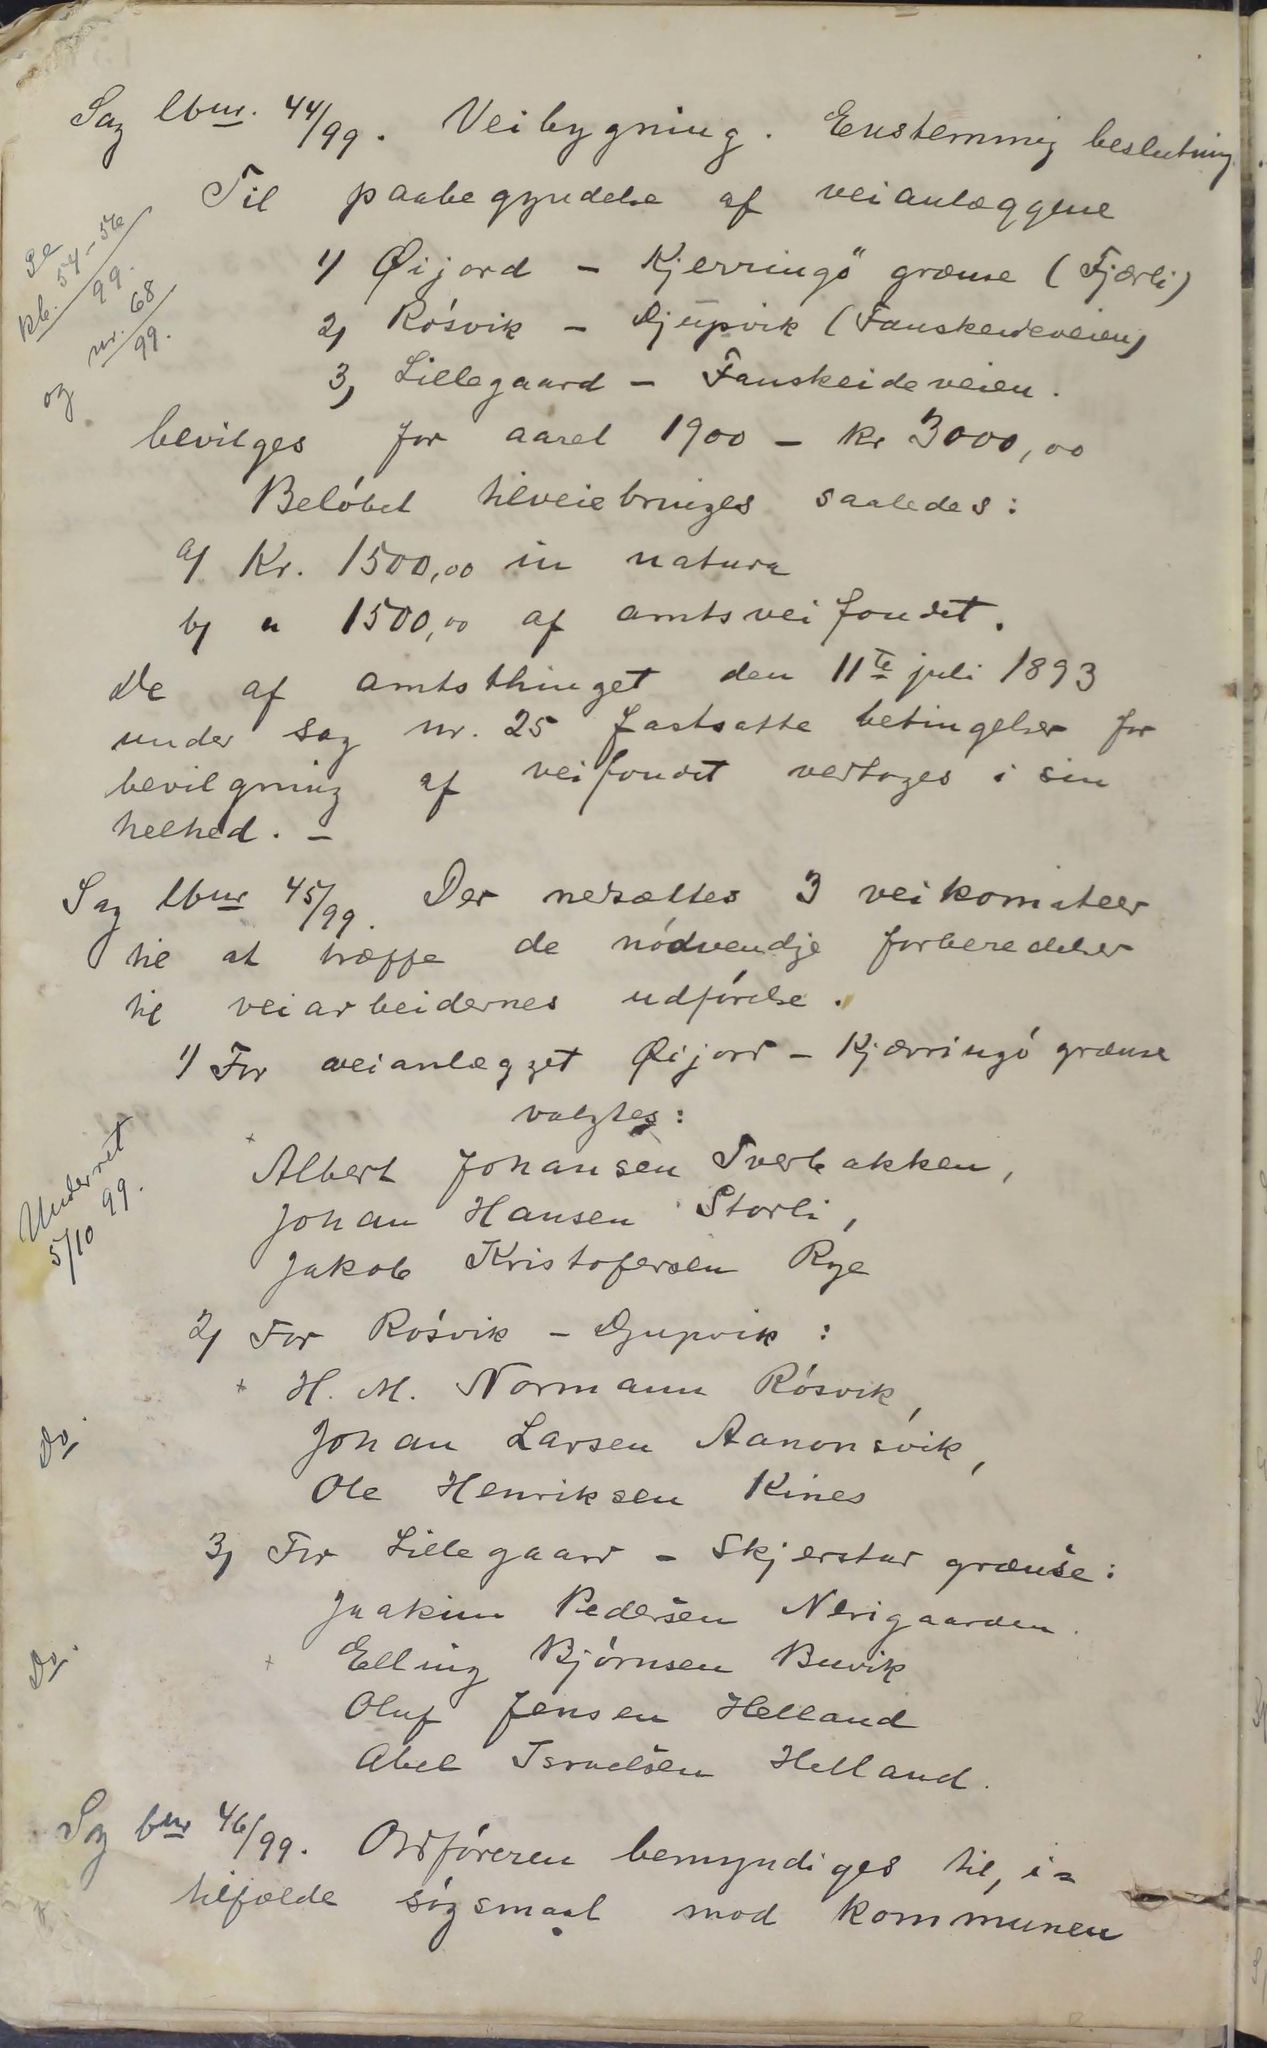 Sag lbnr. 44/99. Veibygning. Enstemmig beslutning.
Til paabegyndelse af veianlæggene
Se
kb. 54-56/99.
og nr. 68/99.
1) Øijord - Kjerringö grænse (Fjærli)
2) Rósvik - Djupvik (Fauskeideveien)
3) Lillegaard - Fauskeideveien.
bevilges for aaret 1900 - kr 3000,00
Belóbet tilveiebringes saaledes:
a) Kr. 1500,00 in natura
b) " 1500,00 af amtsveifondet.
De af amtsthinget den 11te juli 1893
under sag nr. 25 fastsatte betingelser for
bevilgning af veifondet vedtages i sin
helhed. -
Sag lbnr 45/99. Der nedsættes 3 veikomiteer
til at træffe de nódvendige forberedelser
til veiarbeidernes udfórelse.
1) For veianlægget Øijord - Kjærringó grænse
valgtes:
Underret
5/10 99.
+ Albert Johansen Tverbakken,
Johan Hansen Storli,
Jakob Kristofersen Rye
2) For Rósvik - Djupvik:
+ H. M. Normann Rósvik,
Do.
Johan Larsen Aanonsvik,
Ole Henriksen Kines
3) For Lillegaard - Skjerstad grænse:
Joakim Pedersen Nerigaarden.
Do.
+ Elling Bjórnsen Buvik
Oluf Jensen Helland
Abel Israelsen Helland.
Sag bnr 46/99. Ordfóreren bemyndiges til, i=
tilfælde ságsmaal mod kommunen